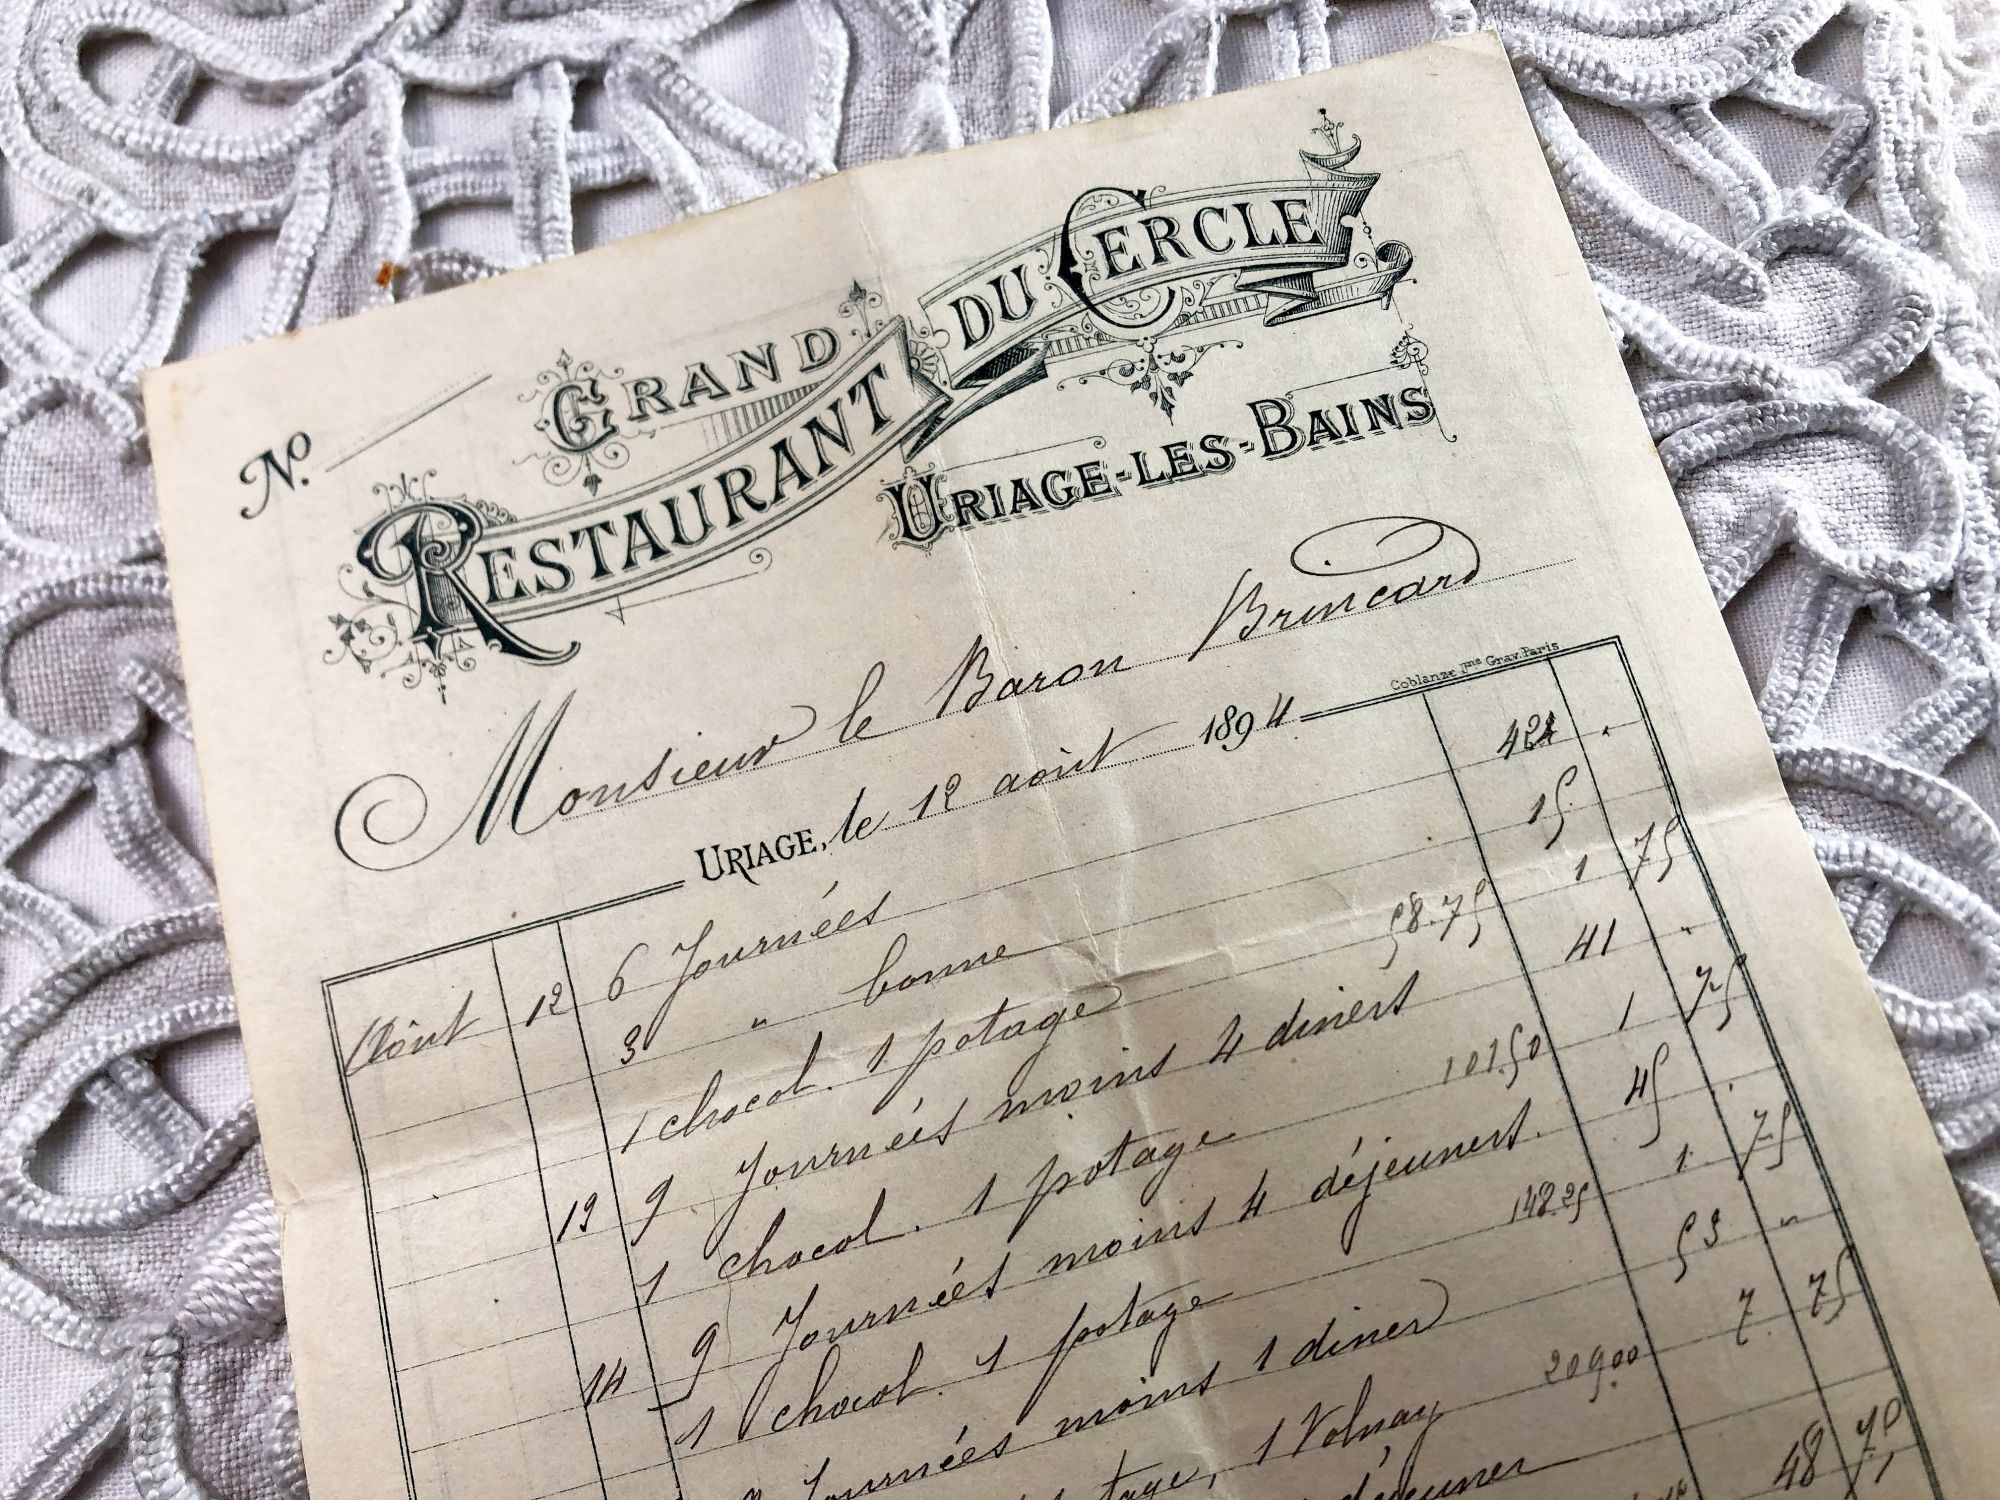 No.
GRAND
RESTAURANT DU CERCLE
URIAGE-LES-BAINS
Monsieur le Baron Brincard
Coblanze Jne Grav. Paris
URIAGE, le 12 août 1894
Août 12 6 Journées 42
3 " bonne 15
1 chocol. 1 potage 58.75 1 75
13 9 Journées moins 4 diners 41 "
1 chocol. 1 potage 101.50 1 75
14 9 Journées moins 4 déjeuners. 45
1 chocol. 1 potage 148.25 1 75
Journées moins 1 diner 53 "
potage, 1 Volnay 209.00 7 75
déjeuner 48